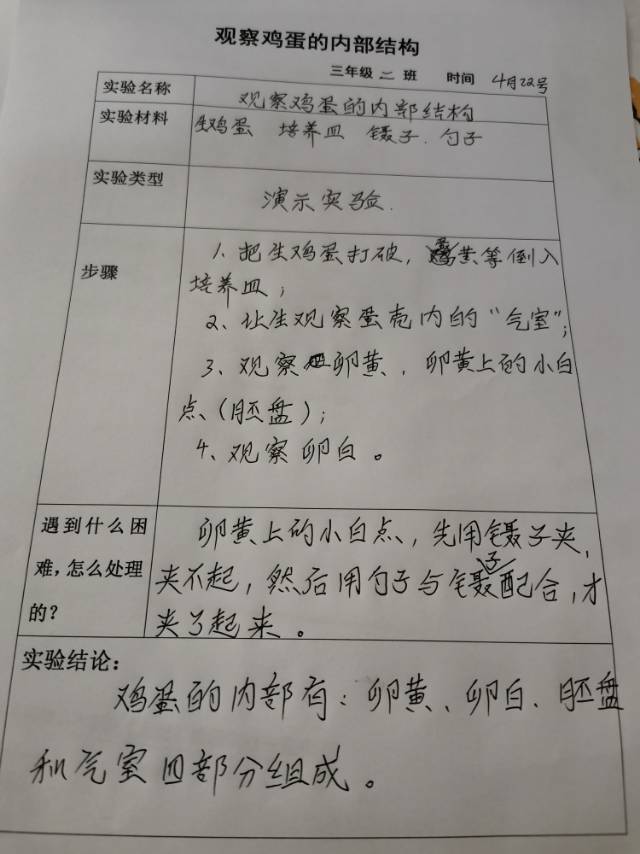 观察鸡蛋的内部结构
三年级 二 班 时间 4月22号
实验名称 观察鸡蛋的内部结构
实验材料 生鸡蛋 培养皿 镊子、勺子
实验类型 演示实验.
步骤
1、把生鸡蛋打破，蛋黄等倒入
培养皿；
2、让生观察蛋壳内的“气室”；
3、观察卵黄，卵黄上的小白
点（胚盘）；
4、观察卵白。
遇到什么困
难，怎么处理
的？
卵黄上的小白点，先用镊子夹，
夹不起，然后用勺子与镊子配合，才
夹了起来。
实验结论：
鸡蛋的内部有：卵黄、卵白、胚盘
和气室四部分组成。